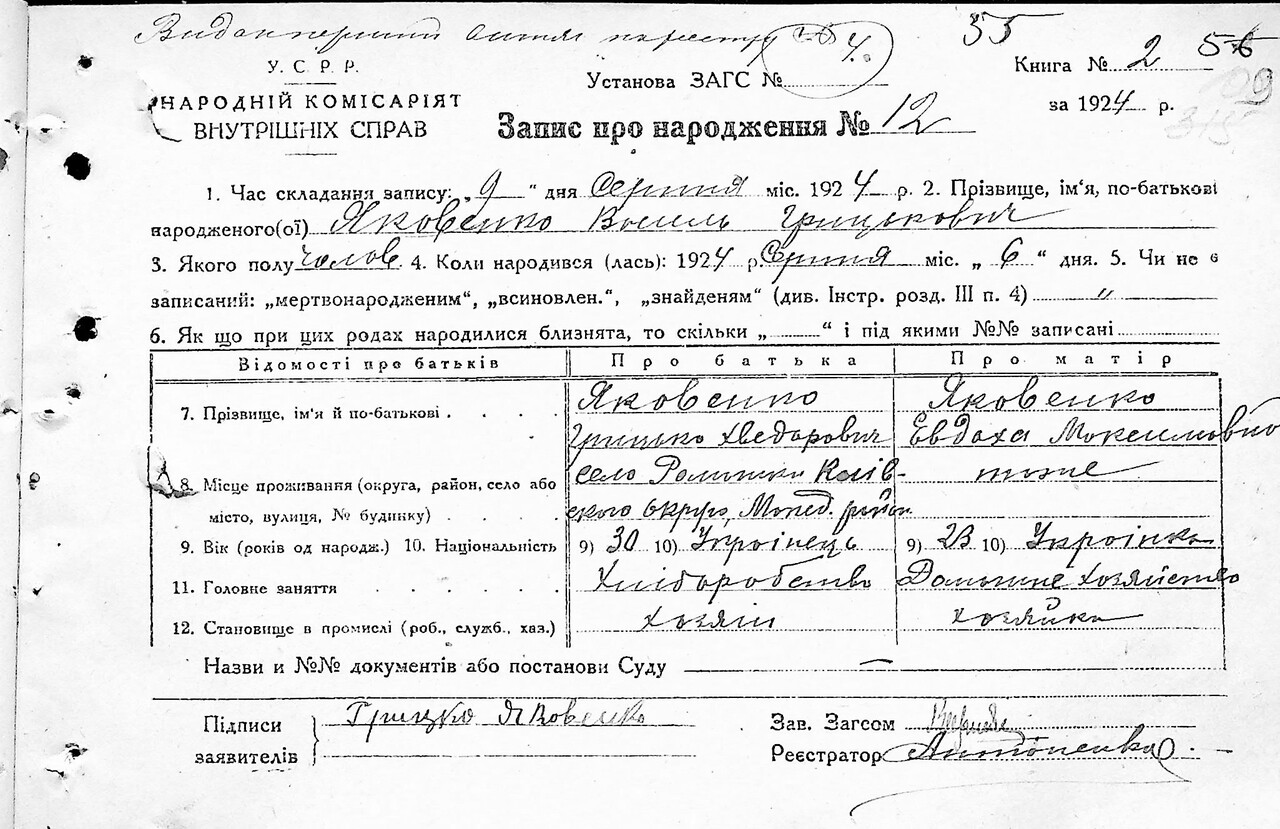 Видан перший витяг по реєстру № 4. 55
У. С. Р. Р.
Установа ЗАГС №
Книга № 2 56
НАРОДНІЙ КОМІСАРІЯТ
ВНУТРІШНІХ СПРАВ
за 1924 р. 109
315
Запис про народження № 12
1. Час складання запису: „9" дня Серпня міс. 1924 р. 2. Прізвище, ім'я, по-батькові
народженого(ої) Яковенко Василь Грицькович
3. Якого полу Чолов. 4. Коли народився (лась): 1924 р. Серпня міс. „ 6 " дня. 5. Чи не є
записаний: „мертвонародженим", „всиновлен.", „знайденям" (див. Інстр. розд. III п. 4) "
6. Як що при цих родах народилися близнята, то скільки „ " і під якими №№ записані
Відомості про батьків Про батька Про матір
7. Прізвище, ім'я й по-батькові . . . . Яковенко Яковенко
Грицько Хведорович Евдаха Максимовна
8. Місце проживання (округа, район, село або село Ромашки тоже
місто, вулиця, № будинку) . . . . ского округу, район
9. Вік (років од народж.) 10. Національність 9) 30 10) Украінець 9) 23 10) Украінка
11. Головне заняття . . . . . . Хліборобство Домашне хозяйство
12. Становище в промислі (роб., служб., хаз.) хозяін хозяйка
Назви и №№ документів або постанови Суду —
Підписи
заявителів
Грицко Яковенко
Зав. Загсом
Реєстратор Антоненко